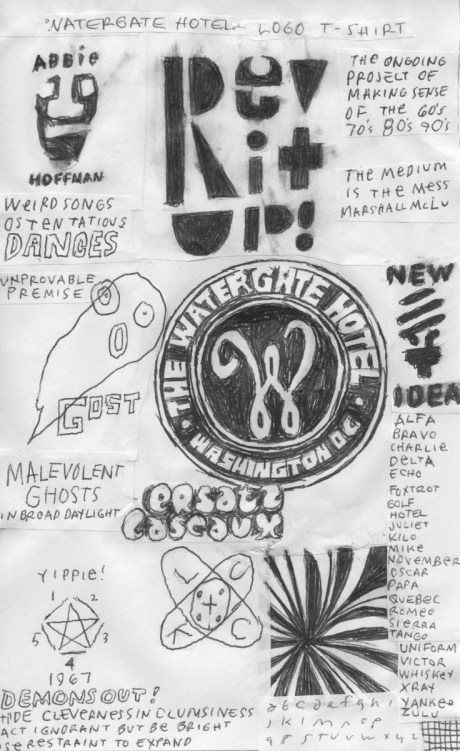 "WATERGATE HOTEL" LOGO T-SHIRT
ABBiE
HOFFMAN
Rev
it
UP!
THE ONGOING
PROJECT OF
MAKING SENSE
OF THE 60's
70's 80's 90's
THE MEDIUM
IS THE MESS
MARSHALL MCLU
WEIRD SONGS
OSTENTATIOUS
DANCES
UNPROVABLE
PREMISE
GOST
THE WATERGATE HOTEL
W
WASHINGTON DC
NEW
IDEA
MALEVOLENT
GHOSTS
IN BROAD DAYLIGHT
eRsatz
Lascaux
ALFA
BRAVO
CHARLIE
DELTA
ECHO
FOXTROT
GOLF
HOTEL
JULIET
KILO
MIKE
NOVEMBER
OSCAR
PAPA
QUEBEC
ROMEO
SIERRA
TANGO
UNIFORM
VICTOR
WHISKEY
XRAY
YANKEE
ZULU
YIPPIE!
1 2
5 3
4
1967
L U
K C
DEMONS OUT!
HIDE CLEVERNESS IN CLUMSINESS
ACT IGNORANT BUT BE BRIGHT
USE RESTRAINT TO EXPAND
a b c d e f g h i
j k l m n o p
q r s t u v w x y z